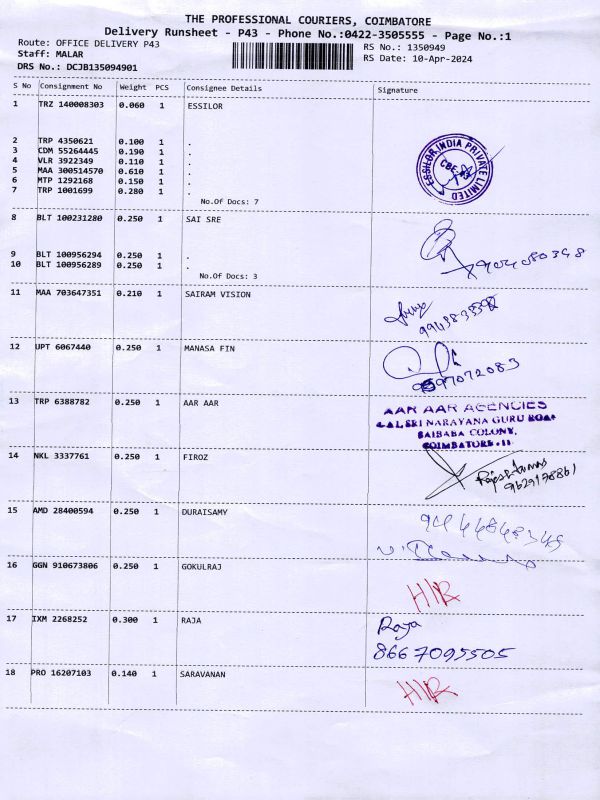 THE PROFESSIONAL COURIERS, COIMBATORE
Delivery Runsheet - P43 - Phone No.:0422-3505555 - Page No.:1
Route: OFFICE DELIVERY P43
RS No.: 1350949
Staff: MALAR
RS Date: 10-Apr-2024
DRS No.: DCJB135094901
S No Consignment No Weight PCS Consignee Details Signature
1 TRZ 140008303 0.060 1 ESSILOR
2 TRP 4350621 0.100 1 .
3 CDM 55264445 0.190 1 .
4 VLR 3922349 0.110 1 .
5 MAA 300514570 0.610 1 .
6 MTP 1292168 0.150 1 .
7 TRP 1001699 0.280 1 .
ESSILOR INDIA PRIVATE LIMITED
CBE
No.Of Docs: 7
8 BLT 100231280 0.250 1 SAI SRE
9 BLT 100956294 0.250 1 .
10 BLT 100956289 0.250 1 .
No.Of Docs: 3
11 MAA 703647351 0.210 1 SAIRAM VISION
12 UPT 6067440 0.250 1 MANASA FIN
13 TRP 6388782 0.250 1 AAR AAR
AAR AAR AGENCIES
SRI NARAYANA GURU ROAD
SAIBABA COLONY,
COIMBATORE-11
14 NKL 3337761 0.250 1 FIROZ
9629178861
15 AMD 28400594 0.250 1 DURAISAMY
16 GGN 910673806 0.250 1 GOKULRAJ
17 IXM 2268252 0.300 1 RAJA
Raja
8667095505
18 PRO 16207103 0.140 1 SARAVANAN